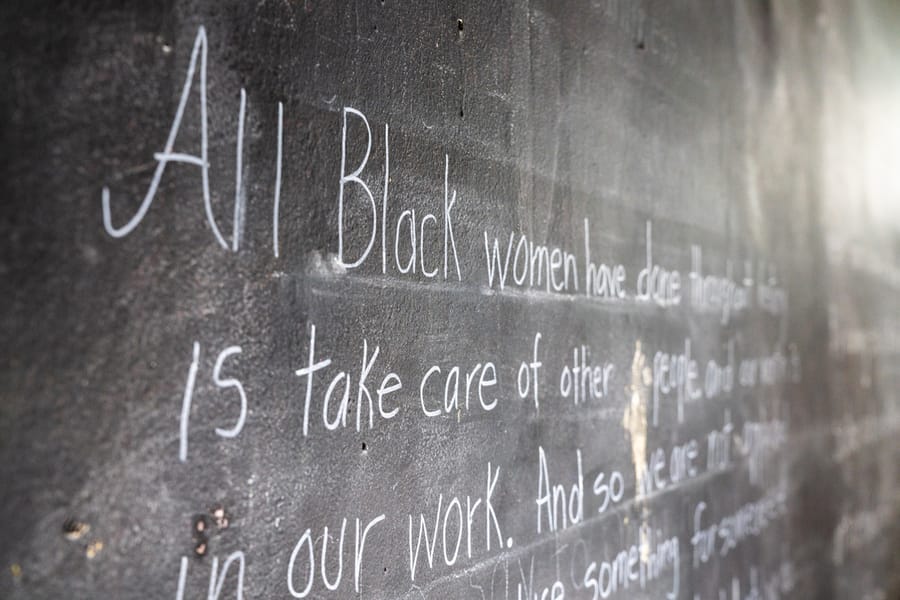 All Black women have done throughout history
is take care of other people, and our worth is
in our work. And so we are not
something for someone